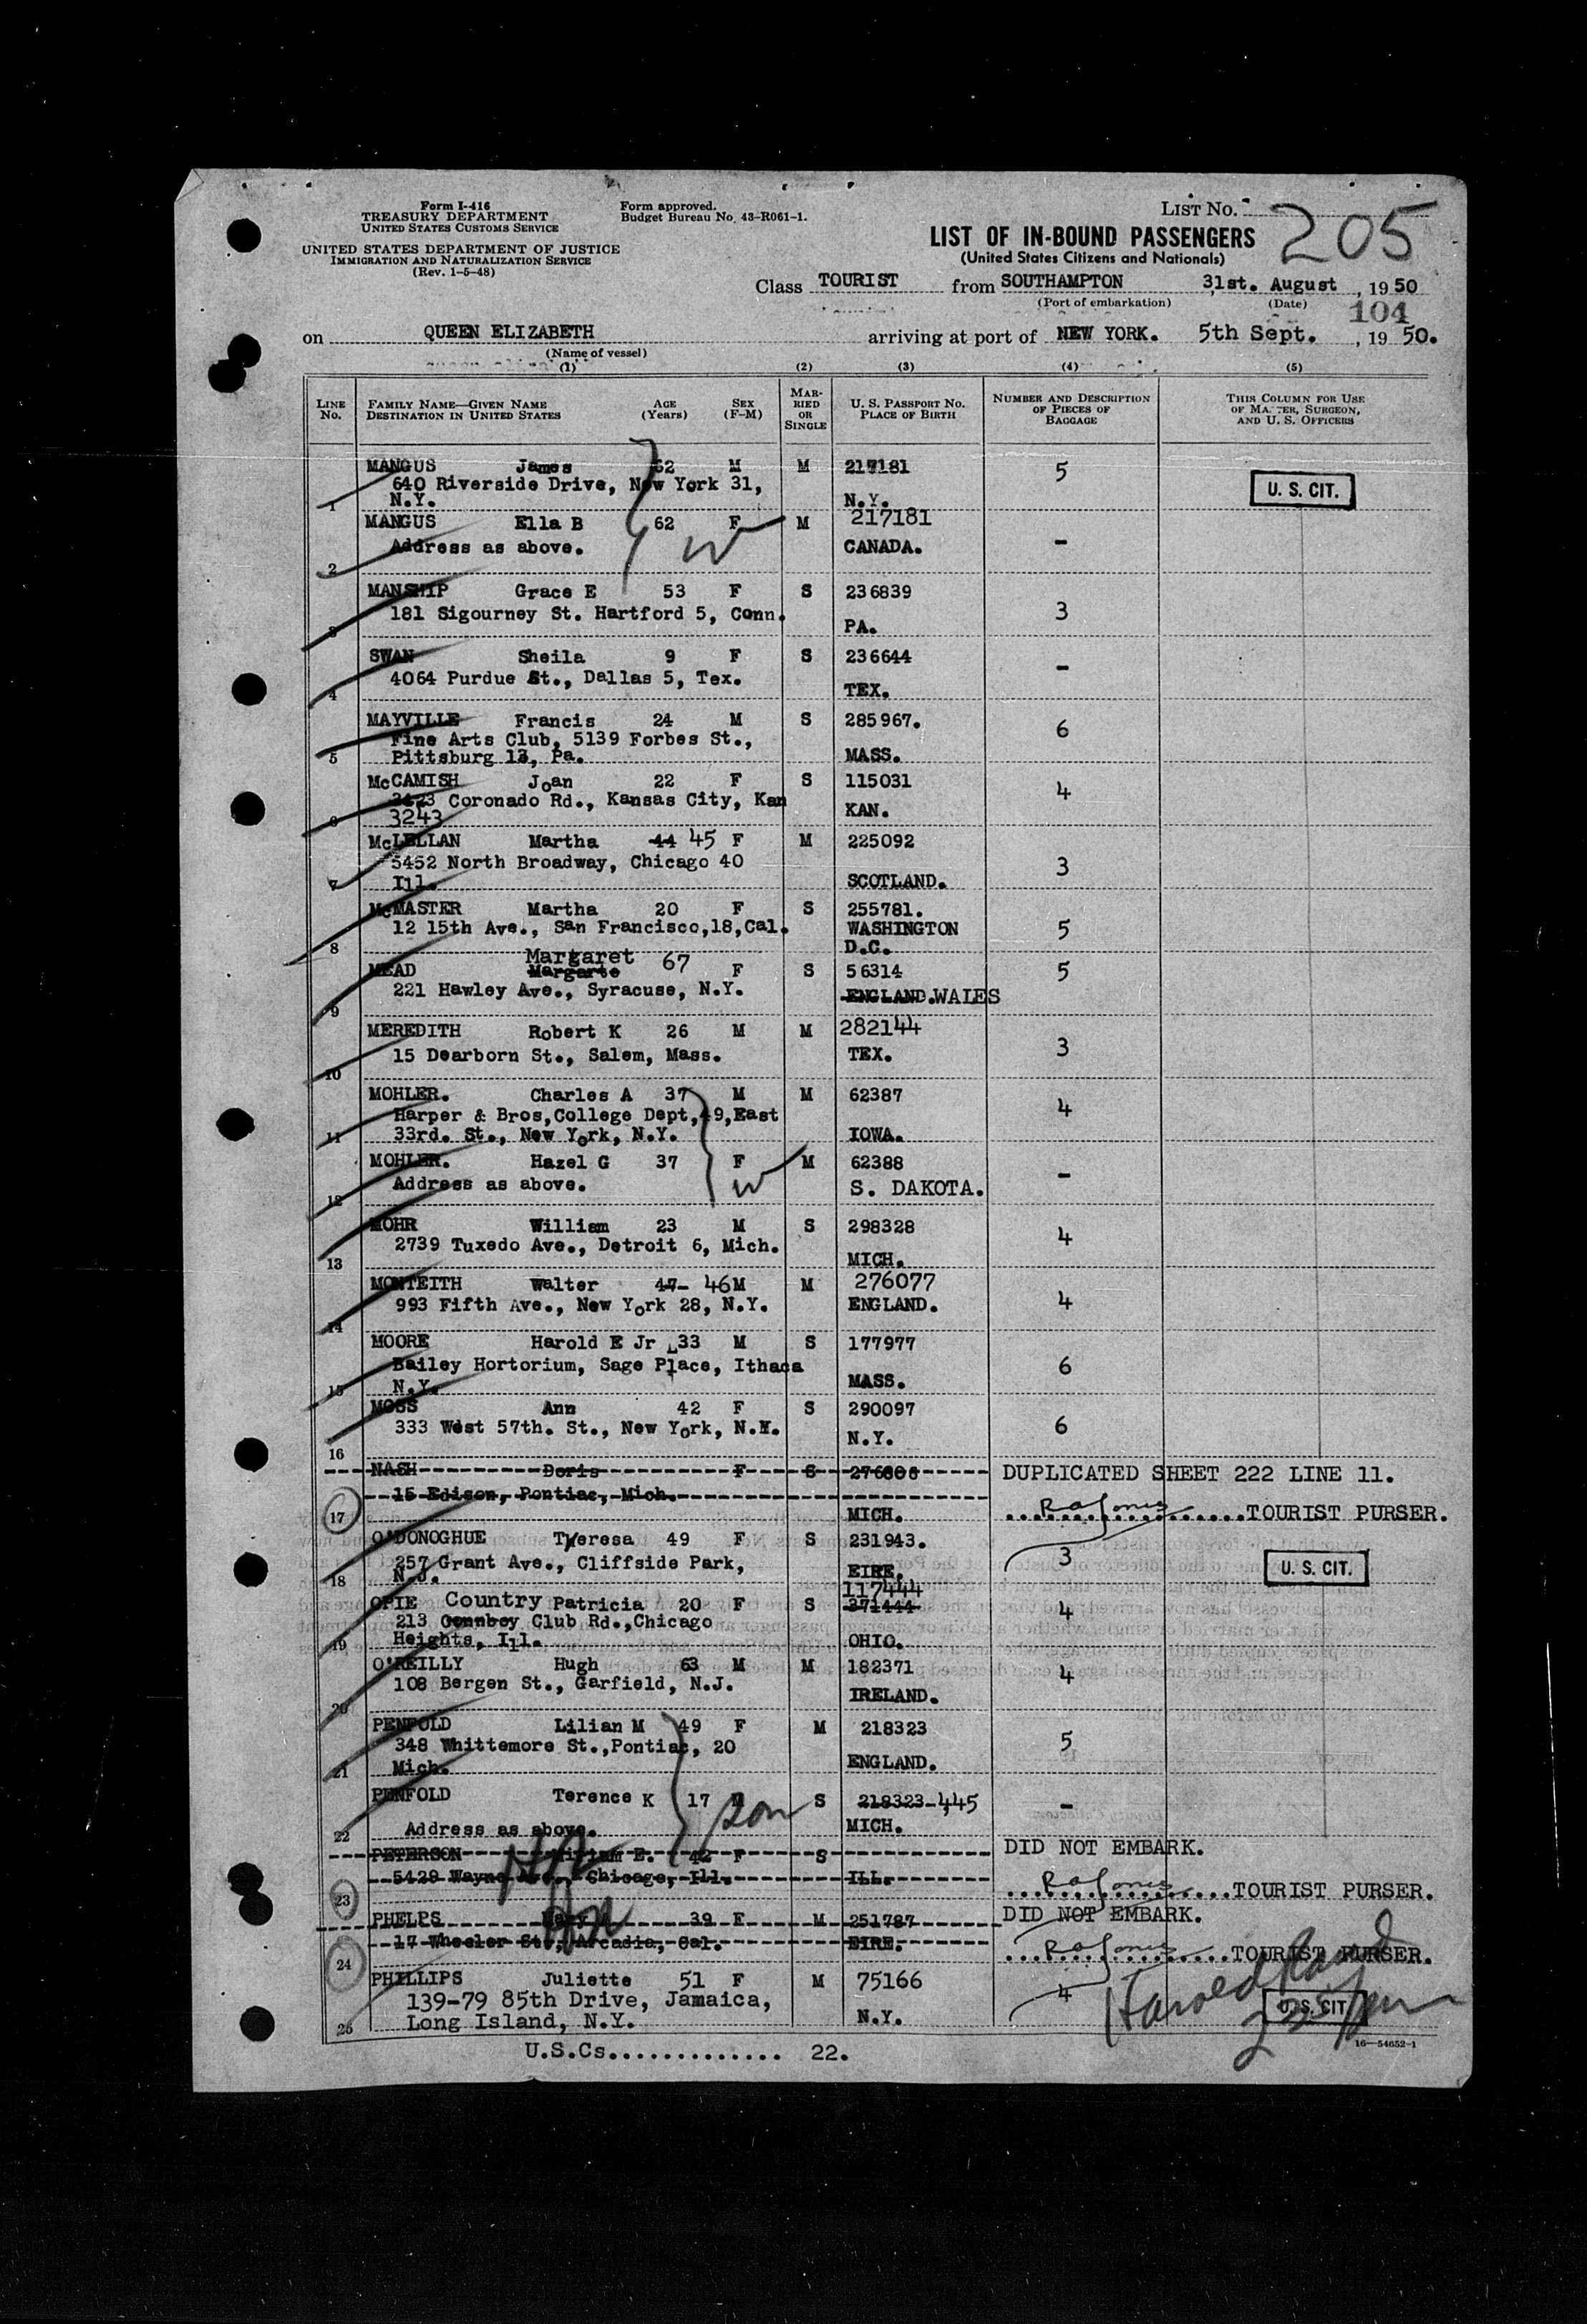 Form I-416
TREASURY DEPARTMENT
UNITED STATES CUSTOMS SERVICE
UNITED STATES DEPARTMENT OF JUSTICE
IMMIGRATION AND NATURALIZATION SERVICE
(Rev. 1-5-48)
Form approved.
Budget Bureau No. 43-R061-1.
LIST NO. 205
LIST OF IN-BOUND PASSENGERS
(United States Citizens and Nationals)
Class TOURIST from SOUTHAMPTON 31st. August, 1950
(Port of embarkation) (Date)
104
on QUEEN ELIZABETH arriving at port of NEW YORK. 5th Sept., 1950.
(Name of vessel)
(1) (2) (3) (4) (5)
LINE No. FAMILY NAME—GIVEN NAME DESTINATION IN UNITED STATES AGE (Years) SEX (F-M) MARRIED OR SINGLE U. S. PASSPORT NO. PLACE OF BIRTH NUMBER AND DESCRIPTION OF PIECES OF BAGGAGE THIS COLUMN FOR USE OF MASTER, SURGEON, AND U. S. OFFICERS
MANGUS James 62 M M 217181 5
640 Riverside Drive, New York 31, U. S. CIT.
1 N.Y. N.Y.
MANGUS Ella B 62 F M 217181
Address as above. W CANADA. -
2
MANSHIP Grace E 53 F S 236839
181 Sigourney St. Hartford 5, Conn. 3
3 PA.
SWAN Sheila 9 F S 236644
4064 Purdue St., Dallas 5, Tex. -
4 TEX.
MAYVILLE Francis 24 M S 285967.
Fine Arts Club, 5139 Forbes St., 6
5 Pittsburg 13, Pa. MASS.
McCAMISH Joan 22 F S 115031
3423 Coronado Rd., Kansas City, Kan 4
6 3243 KAN.
McLELLAN Martha 44 45 F M 225092
5452 North Broadway, Chicago 40 3
7 Ill. SCOTLAND.
McMASTER Martha 20 F S 255781.
12 15th Ave., San Francisco,18,Cal. WASHINGTON 5
8 D.C.
Margaret 67
MEAD Margarte F S 56314 5
221 Hawley Ave., Syracuse, N.Y. ENGLAND.WALES
9
MEREDITH Robert K 26 M M 282144
15 Dearborn St., Salem, Mass. TEX. 3
10
MOHLER. Charles A 37 M M 62387
Harper & Bros,College Dept,49,East 4
11 33rd. St., New York, N.Y. IOWA.
MOHLER. Hazel G 37 F M 62388
Address as above. W S. DAKOTA. -
12
MOHR William 23 M S 298328
2739 Tuxedo Ave., Detroit 6, Mich. 4
13 MICH.
MONTEITH Walter 47- 46 M M 276077
993 Fifth Ave., New York 28, N.Y. ENGLAND. 4
14
MOORE Harold E Jr 33 M S 177977
Bailey Hortorium, Sage Place, Ithaca 6
15 N.Y. MASS.
MOSS Ann 42 F S 290097
333 West 57th. St., New York, N.Y. 6
16 N.Y.
NASH Doris F S DUPLICATED SHEET 222 LINE 11.
15 Edison, Pontiac, Mich.
17 MICH. TOURIST PURSER.
O'DONOGHUE Theresa 49 F S 231943.
257 Grant Ave., Cliffside Park, 3 U. S. CIT.
18 N.J. EIRE.
117444
OPIE Country Patricia 20 F S 371444
213 Connbey Club Rd.,Chicago 4
19 Heights, Ill. OHIO.
O'REILLY Hugh 63 M M 182371
108 Bergen St., Garfield, N.J. 4
20 IRELAND.
PENFOLD Lilian M 49 F M 218323
348 Whittemore St.,Pontiac, 20 5
21 Mich. ENGLAND.
PENFOLD Terence K 17 M son S 218323-445
22 Address as above. MICH. -
PETERSON E. 42 F S DID NOT EMBARK.
5429 Wayne Ave., Chicago, Ill. ILL.
23 TOURIST PURSER.
PHELPS Mary 39 F M 251787 DID NOT EMBARK.
17 Wheeler St., Arcadia, Cal. EIRE.
24 TOURIST PURSER.
PHILLIPS Juliette 51 F M 75166
139-79 85th Drive, Jamaica, 4 U. S. CIT.
25 Long Island, N.Y. N.Y.
U.S.Cs.............. 22.
16—54652-1